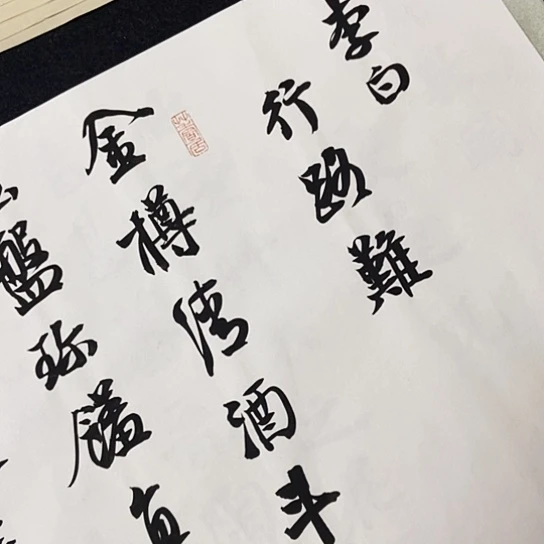 李白
行路難
金樽清酒斗
盤珍饈直